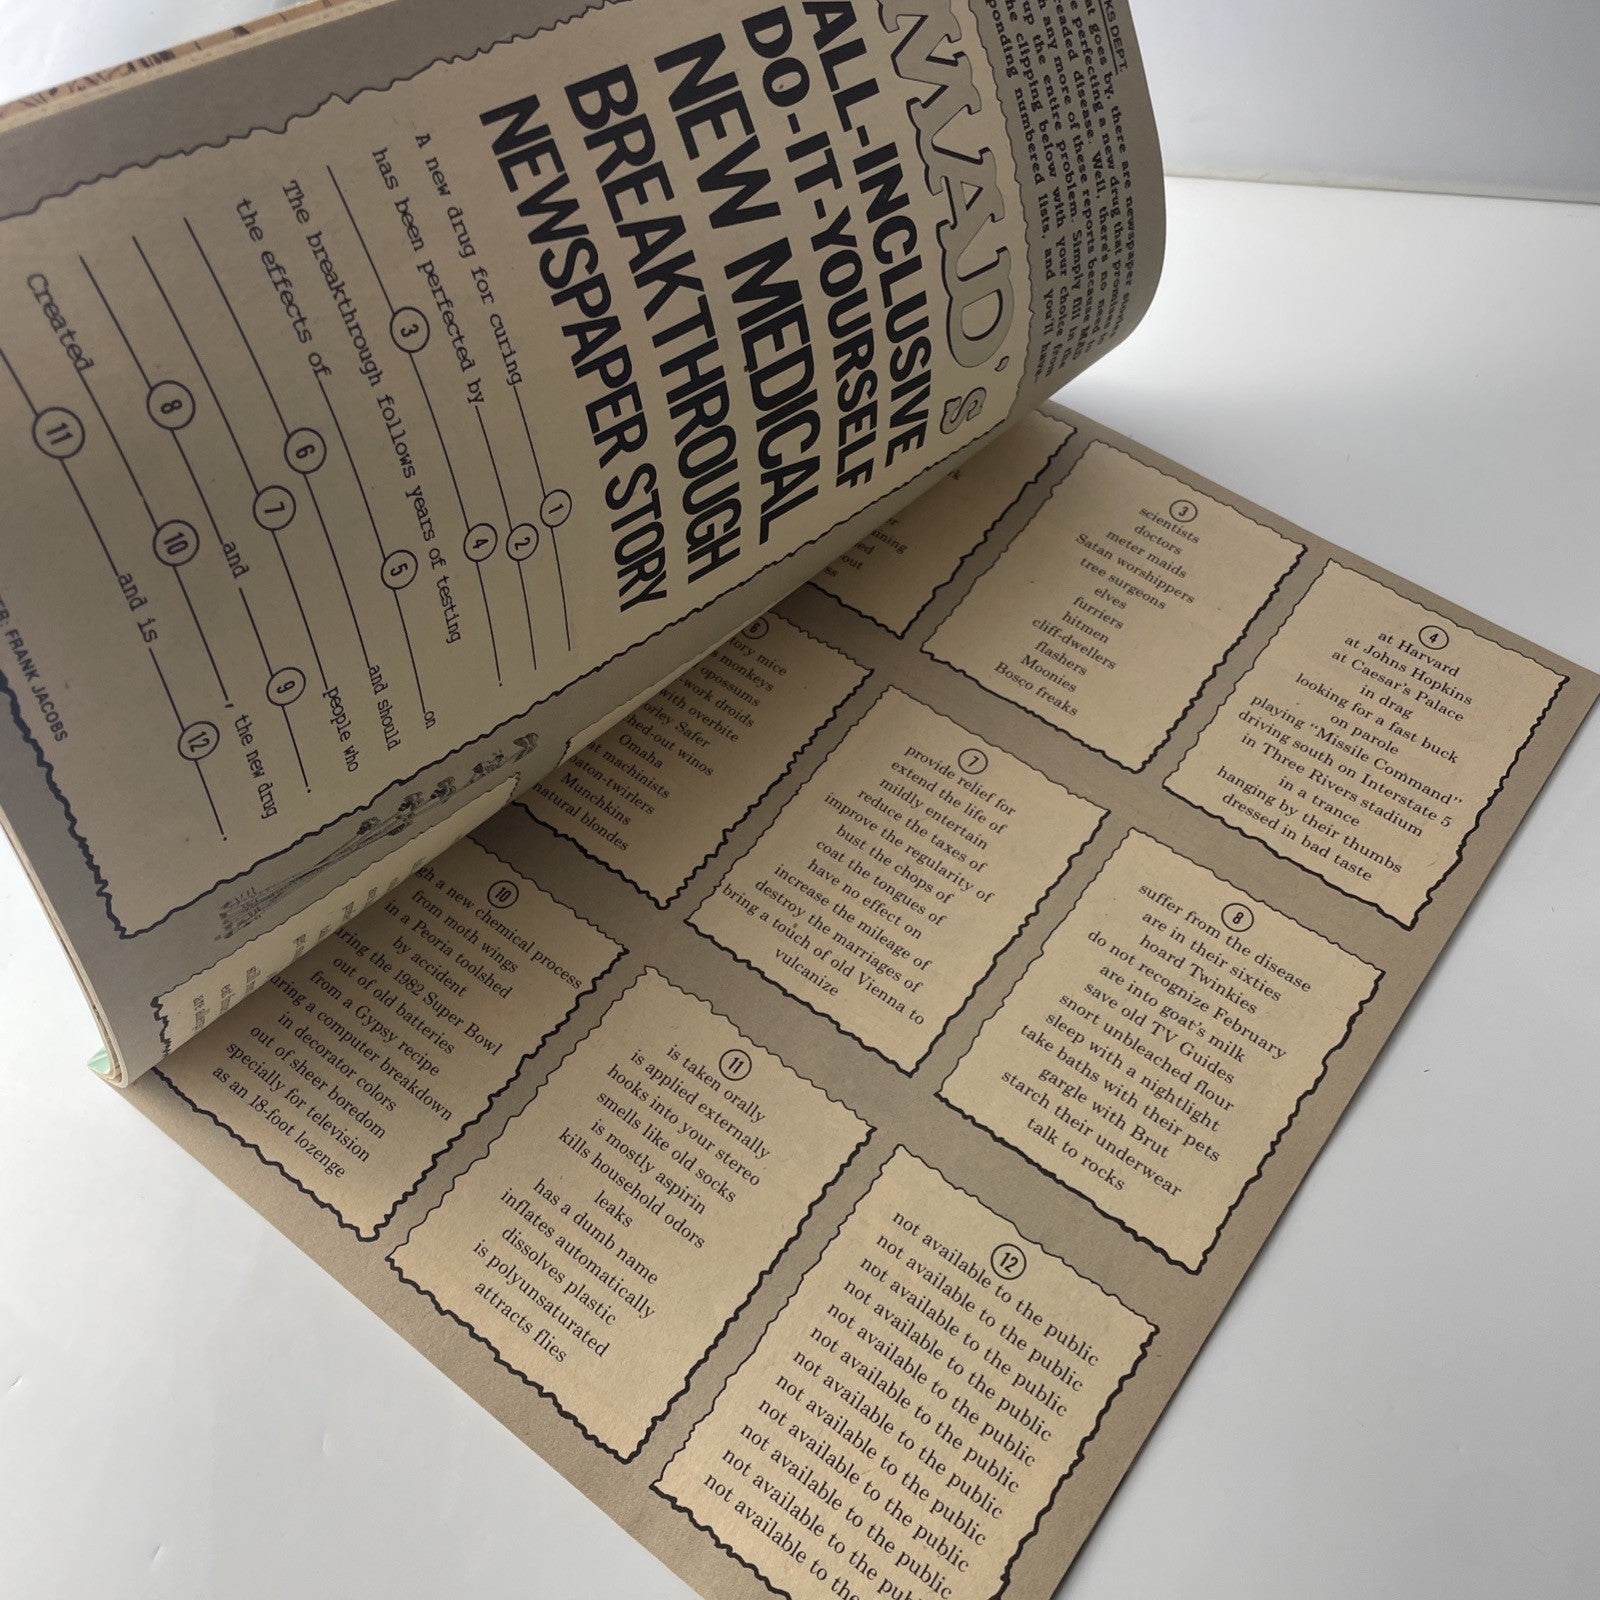 KS DEPT.
goes by, there are newspaper stories
perfecting a new drug that promises to
dreaded disease. Well, there's no need to
any more of these reports because MAD
up the entire problem. Simply fill in the
the clipping below with your choice from
numbered lists, and you'll have.
MAD's
ALL-INCLUSIVE
DO-IT-YOURSELF
NEW MEDICAL
BREAKTHROUGH
NEWSPAPER STORY
A new drug for curing 1
has been perfected by 2
3 4 .
The breakthrough follows years of testing
the effects of 5 on
6 and should
7 people who
8 and 9 .
Created 10 , the new drug
11 and is 12 .
FRANK JACOBS
3
scientists
doctors
meter maids
Satan worshippers
tree surgeons
elves
furriers
hitmen
cliff-dwellers
flashers
Moonies
Bosco freaks
4
at Harvard
at Johns Hopkins
at Caesar's Palace
in drag
looking for a fast buck
on parole
playing "Missile Command"
driving south on Interstate 5
in Three Rivers stadium
in a trance
hanging by their thumbs
dressed in bad taste
6
mice
monkeys
opossums
droids
with overbite
Safer
winos
Omaha
machinists
baton-twirlers
Munchkins
natural blondes
7
provide relief for
extend the life of
mildly entertain
reduce the taxes of
improve the regularity of
bust the chops of
coat the tongues of
have no effect on
increase the mileage of
destroy the marriages of
bring a touch of old Vienna to
vulcanize
8
suffer from the disease
are in their sixties
hoard Twinkies
do not recognize February
are into goat's milk
save old TV Guides
snort unbleached flour
sleep with a nightlight
take baths with their pets
gargle with Brut
starch their underwear
talk to rocks
10
a new chemical process
from moth wings
in a Peoria toolshed
by accident
the 1982 Super Bowl
out of old batteries
from a Gypsy recipe
a computer breakdown
in decorator colors
out of sheer boredom
specially for television
as an 18-foot lozenge
11
is taken orally
is applied externally
hooks into your stereo
smells like old socks
is mostly aspirin
kills household odors
leaks
has a dumb name
inflates automatically
dissolves plastic
is polyunsaturated
attracts flies
12
not available to the public
not available to the public
not available to the public
not available to the public
not available to the public
not available to the public
not available to the public
not available to the public
not available to the public
not available to the public
not available to the public
not available to the